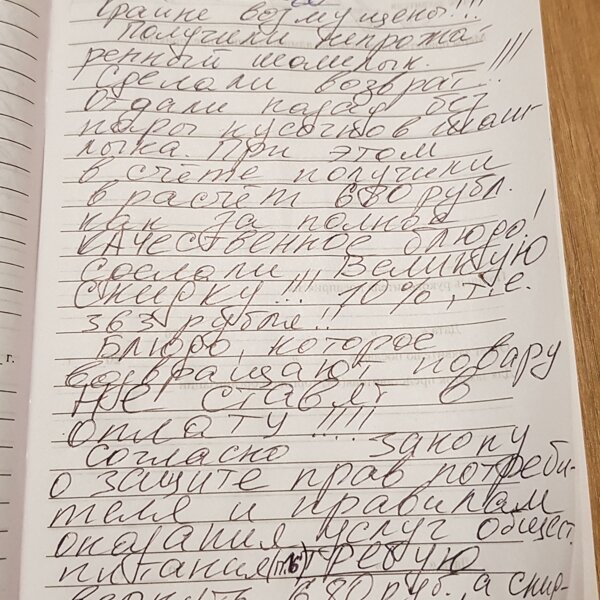 крайне возмущены!!!
Получили непрожа
ренный шашлык. !!!
Сделали возврат...
Отдали назад без
пары кусочков шаш-
лыка. При этом
в счете получили
в расчёт 680 рубл.
как за полное
качественное блюдо!
Сделали Великую
Скидку!!! 10%, т.е.
363 рубля!!
Блюдо, которое
возвращают повару
не ставят в
оплату!!!!!
Согласно закону
о защите прав потреби-
теля и правилам
оказания услуг общест.
питания (п.16) требую
вернуть 680 руб., а скид-